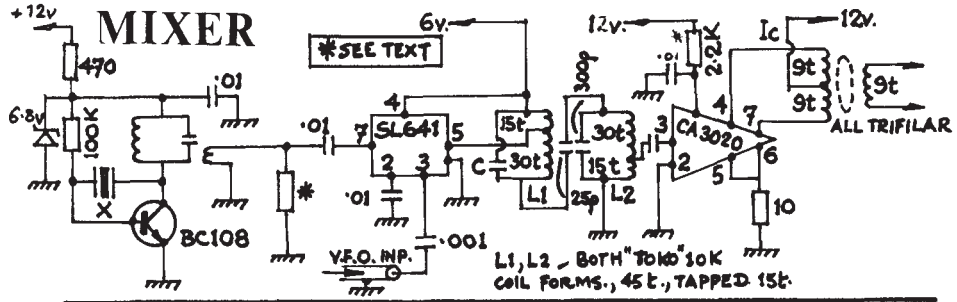 +12v
MIXER
470
.01
6.8v
100K
X
BC108
*SEE TEXT
6v.
.01
7
4
SL641
5
2
3
.01
*
.001
V.F.O. INP.
15t
30t
C
L1
300p
25p
30t
15t
L2
12v.
*
2.2K
.01
3
2
CA3020
4
7
6
5
10
Ic
12v.
9t
9t
9t
ALL TRIFILAR
L1, L2 - BOTH "TOKO" 10K
COIL FORMS., 45t., TAPPED 15t.